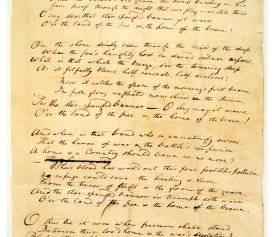 gave proof through the night that our flag was still there
O say does that star-spangled banner yet wave
O'er the land of the free & the home of the brave?
On the shore dimly seen through the mists of the deep,
Where the foe's haughty host in dread silence reposes,
What is that which the breeze, o'er the towering steep,
As it fitfully blows, half conceals, half discloses?
Now it catches the gleam of the morning's first beam,
In full glory reflected now shines in the stream,
'Tis the star-spangled banner - O long may it wave
O'er the land of the free & the home of the brave!
And where is that band who so vauntingly swore,
That the havoc of war & the battle's confusion
A home & a Country should leave us no more?
Their blood has wash'd out their foul footstep's pollution
No refuge could save the hireling & slave
From the terror of flight or the gloom of the grave,
And the star-spangled banner in triumph doth wave
O'er the land of the free & the home of the brave.
O thus be it ever when freemen shall stand
Between their lov'd home & the war's desolation!